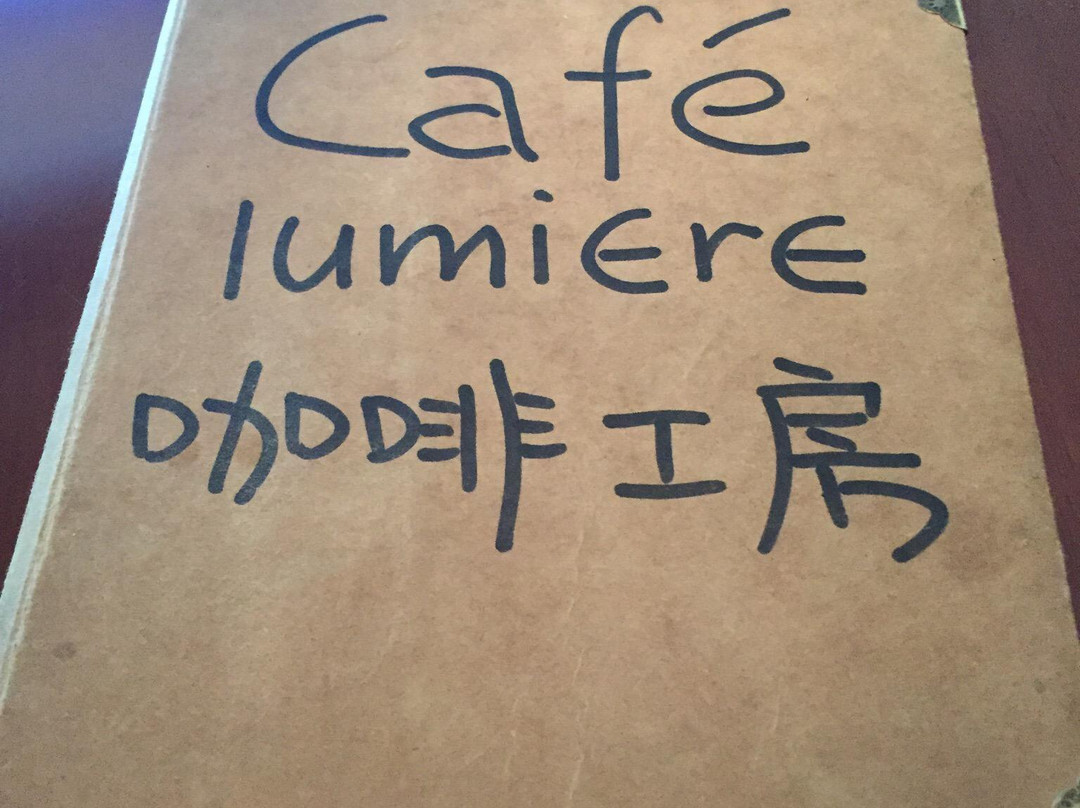 Café
lumiere
咖啡工房